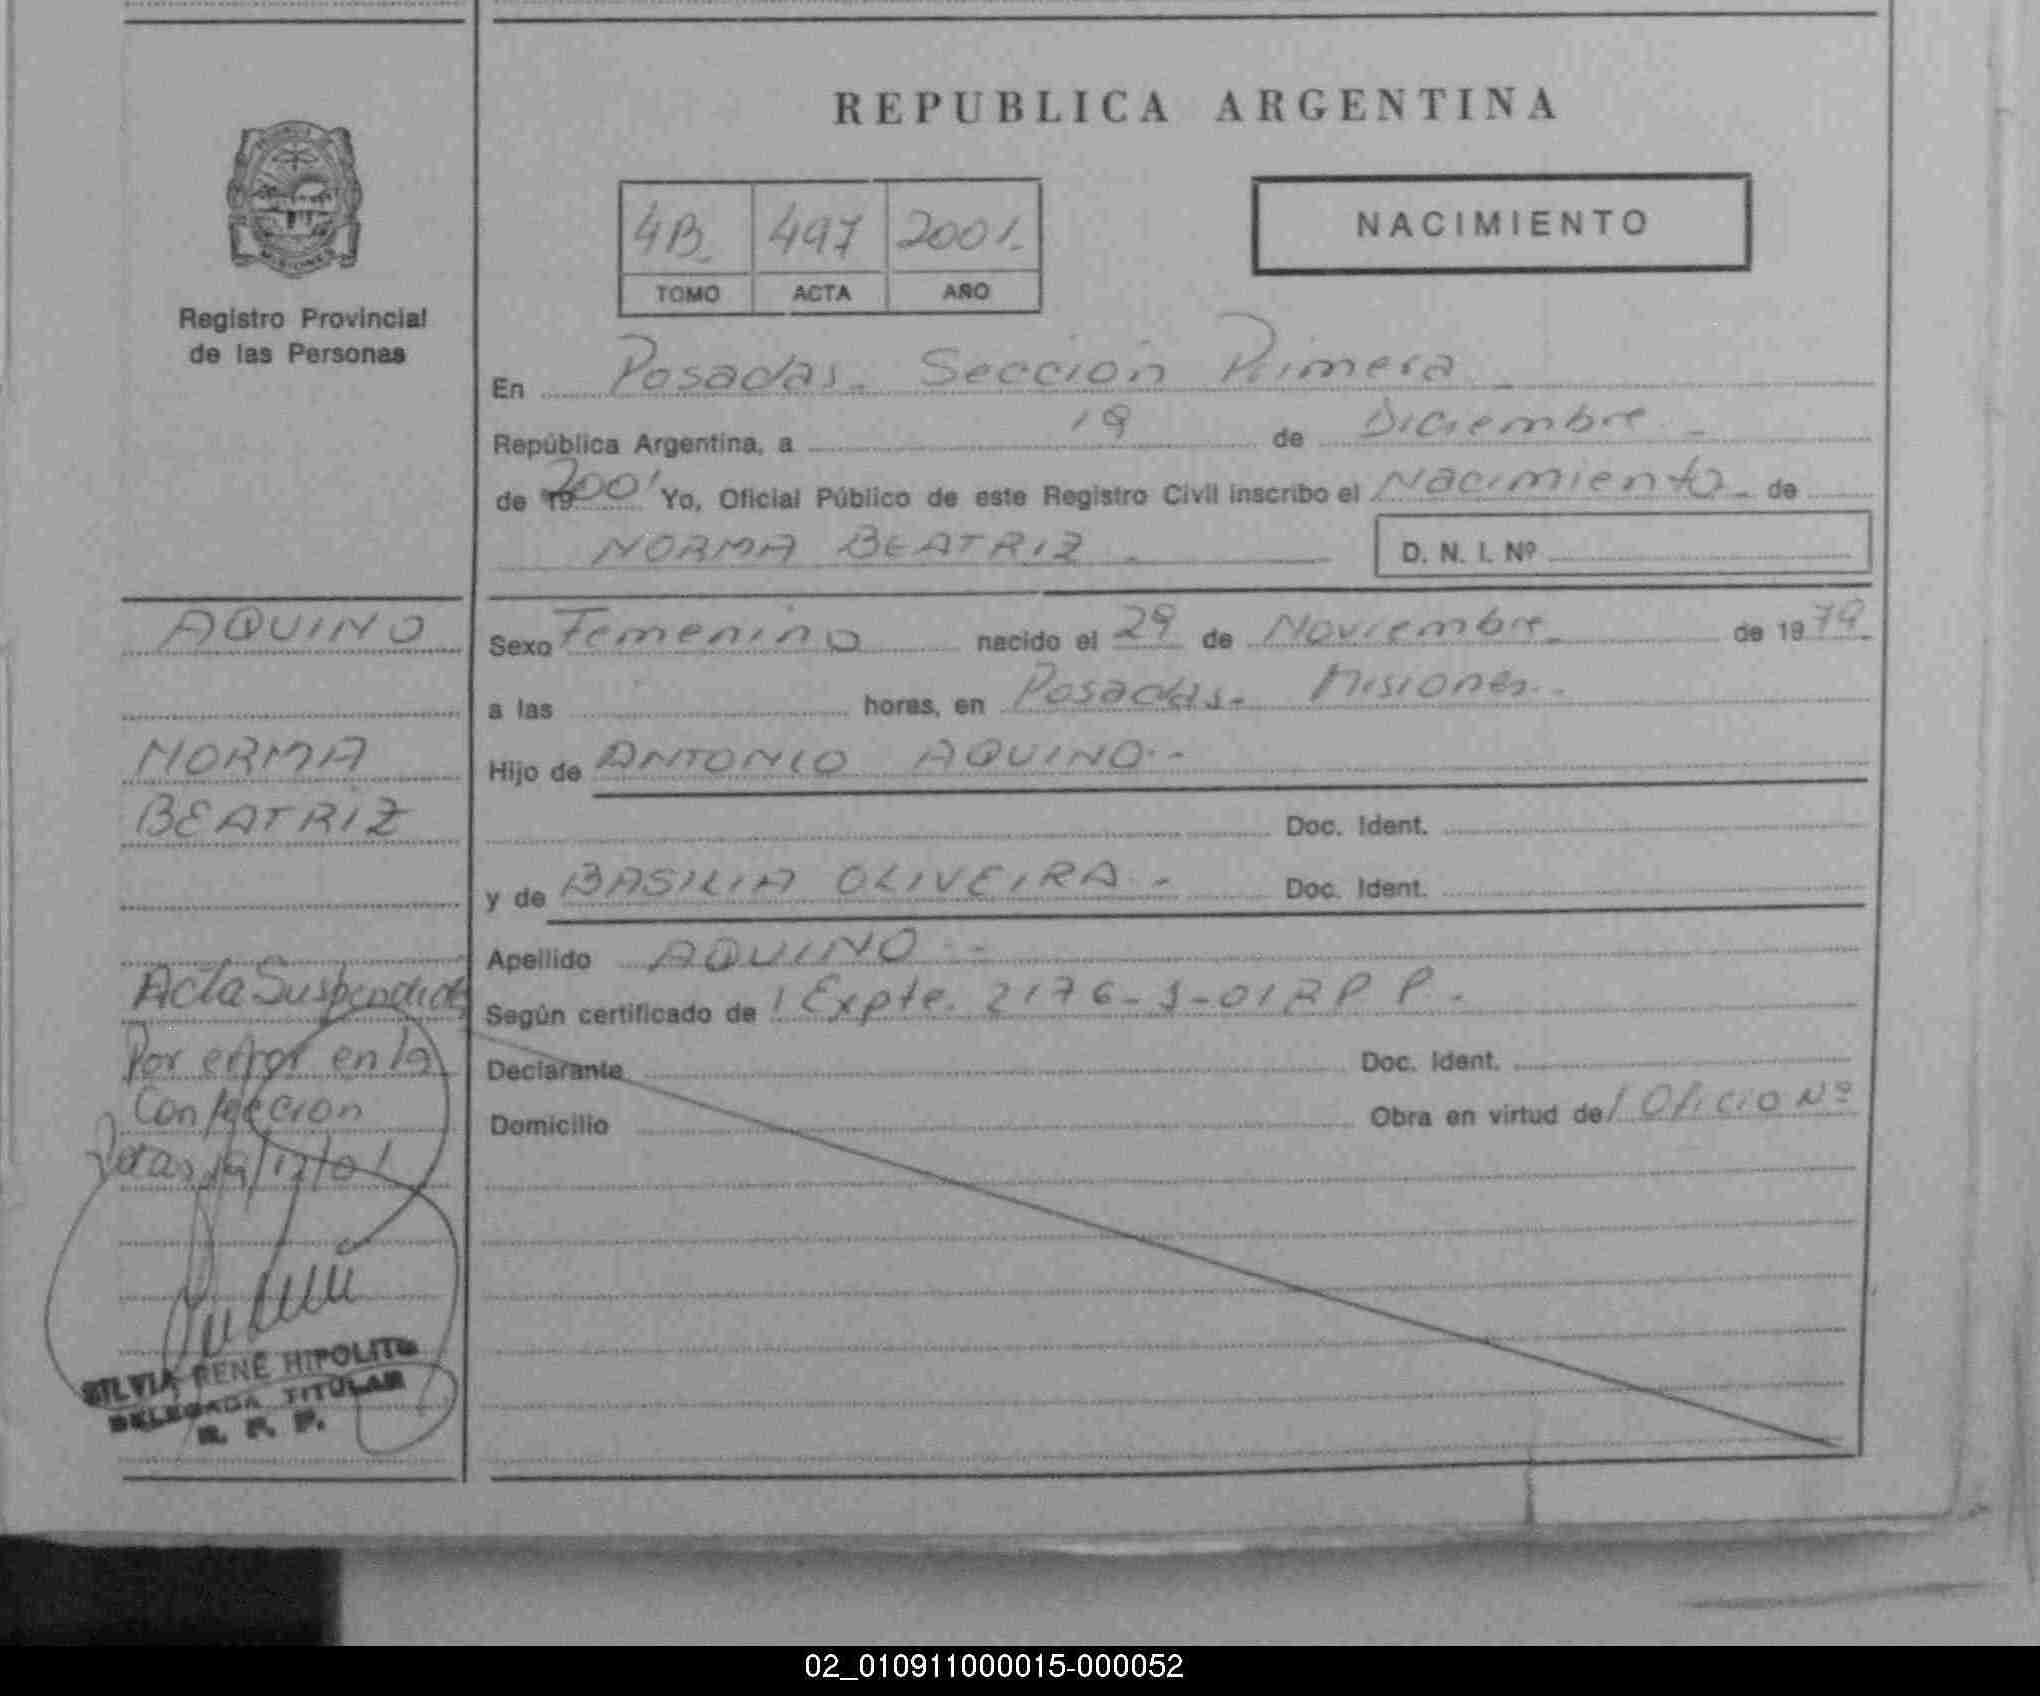 REPUBLICA ARGENTINA
4B 497 2001
TOMO ACTA AÑO
NACIMIENTO
MISIONES
Registro Provincial
de las Personas
En Posadas. Sección Primera
República Argentina, a 19 de Diciembre
de 19 2001 Yo, Oficial Público de este Registro Civil inscribo el Nacimiento de
NORMA BEATRIZ D. N. I. Nº
AQUINO
NORMA
BEATRIZ
Acta Suspendida
Por error en la
Confeccion
19/12/01
SILVIA RENE HIPOLITO
DELEGADA TITULAR
R. P. P.
Sexo Femenino nacido el 29 de Noviembre de 1979
a las horas, en Posadas. Misiones.
Hijo de ANTONIO AQUINO.
Doc. Ident.
y de BASILIA OLIVEIRA. Doc. Ident.
Apellido AQUINO
Según certificado de Expte. 2176-J-01 RPP.
Declarante Doc. Ident.
Domicilio Obra en virtud de Oficio Nº
02_010911000015-000052